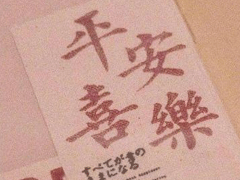 平安
喜樂
すべてが幸の
ままになる